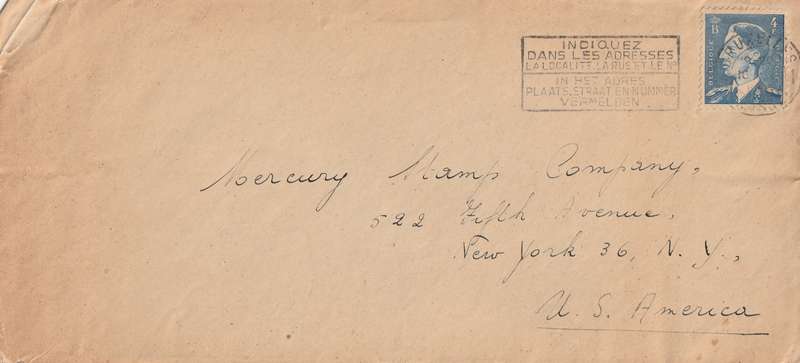 INDIQUEZ
DANS LES ADRESSES
LA LOCALITÉ, LA RUE ET LE Nº
IN HET ADRES
PLAATS, STRAAT EN NUMMER
VERMELDEN
B 4F
BELGIQUE
Mercury Stamp Company,
522 Fifth Avenue,
New York 36, N. Y.,
U. S. America